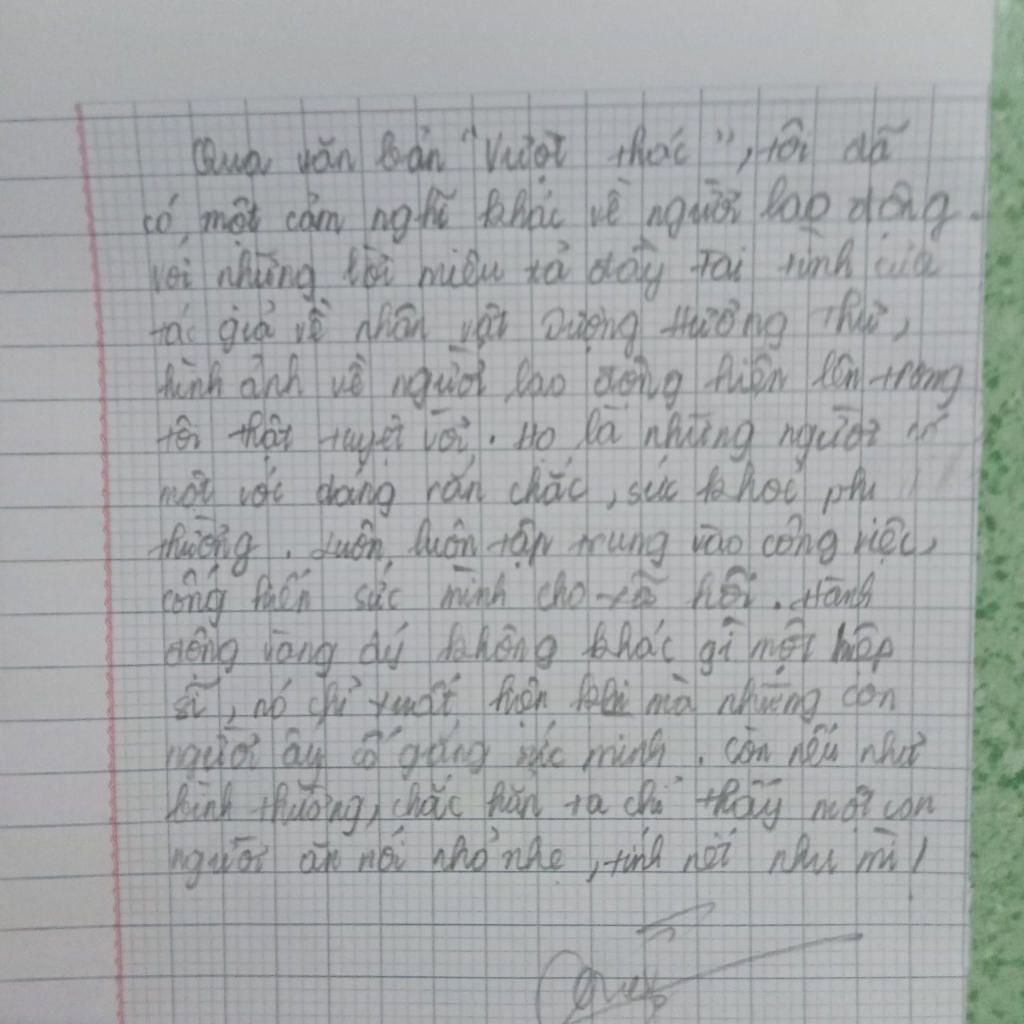 Qua văn bản "Vượt thác", tôi đã
có một cảm nghĩ khác về người lao động.
với những lời miêu tả đầy tài tình của
tác giả về nhân vật Dượng Hương Thư,
hình ảnh về người lao động hiện lên trong
tôi thật tuyệt vời. Họ là những người có
một vóc dáng rắn chắc, sức khoẻ phi
thường. Luôn luôn tập trung vào công việc,
cống hiến sức mình cho xã hội. Hành
động vàng dý không khác gì một hiệp
sĩ, nó chỉ xuất hiện khi mà những con
người ấy cố gắng sức mình. Còn nếu như
bình thường, chắc hẳn ta chỉ thấy một con
người ăn nói nhỏ nhẹ, tính nết nhu mì!